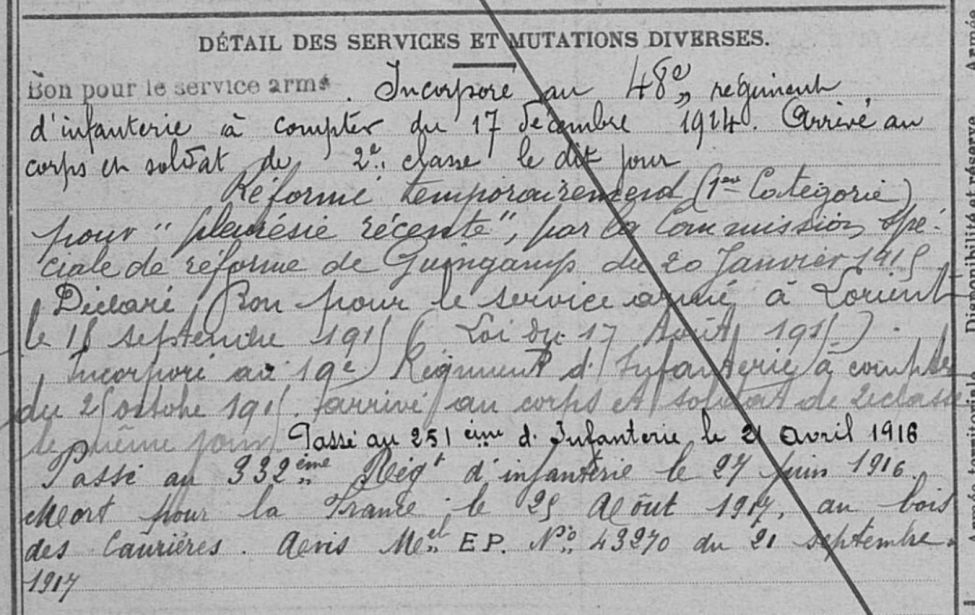 DÉTAIL DES SERVICES ET MUTATIONS DIVERSES.
Bon pour le service armé. Incorporé au 48e régiment
d'infanterie à compter du 17 décembre 1914. Arrivé au
corps et soldat de 2e classe le dit jour
Réformé temporairement (1ère Catégorie)
pour "pleurésie récente", par la Commission spé-
ciale de réforme de Guingamp du 20 Janvier 1915
Déclaré Bon pour le service armé à Lorient
le septembre 1915 (Loi du 17 Août 1915).
Incorporé au 19e Régiment d'Infanterie à compter
du 25 octobre 1915. arrivé au corps et soldat de 2e classe
le même jour. Passé au 251ème d'Infanterie le 21 avril 1916
Passé au 332ème Régt d'infanterie le 27 Juin 1916.
Mort pour la France le 25 Août 1917, au bois
des Caurières. Avis Mel E.P. No 43270 du 21 septembre
1917